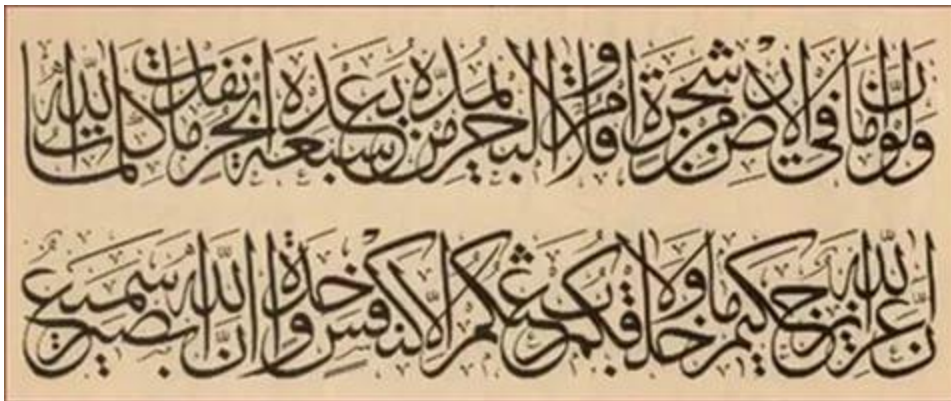 وَلَوْ أَنَّمَا فِي الْأَرْضِ مِنْ شَجَرَةٍ أَقْلَامٌ وَالْبَحْرُ يَمُدُّهُ مِنْ بَعْدِهِ سَبْعَةُ أَبْحُرٍ مَا نَفِدَتْ كَلِمَاتُ اللَّهِ
إِنَّ اللَّهَ عَزِيزٌ حَكِيمٌ مَا خَلْقُكُمْ وَلَا بَعْثُكُمْ إِلَّا كَنَفْسٍ وَاحِدَةٍ إِنَّ اللَّهَ سَمِيعٌ بَصِيرٌ